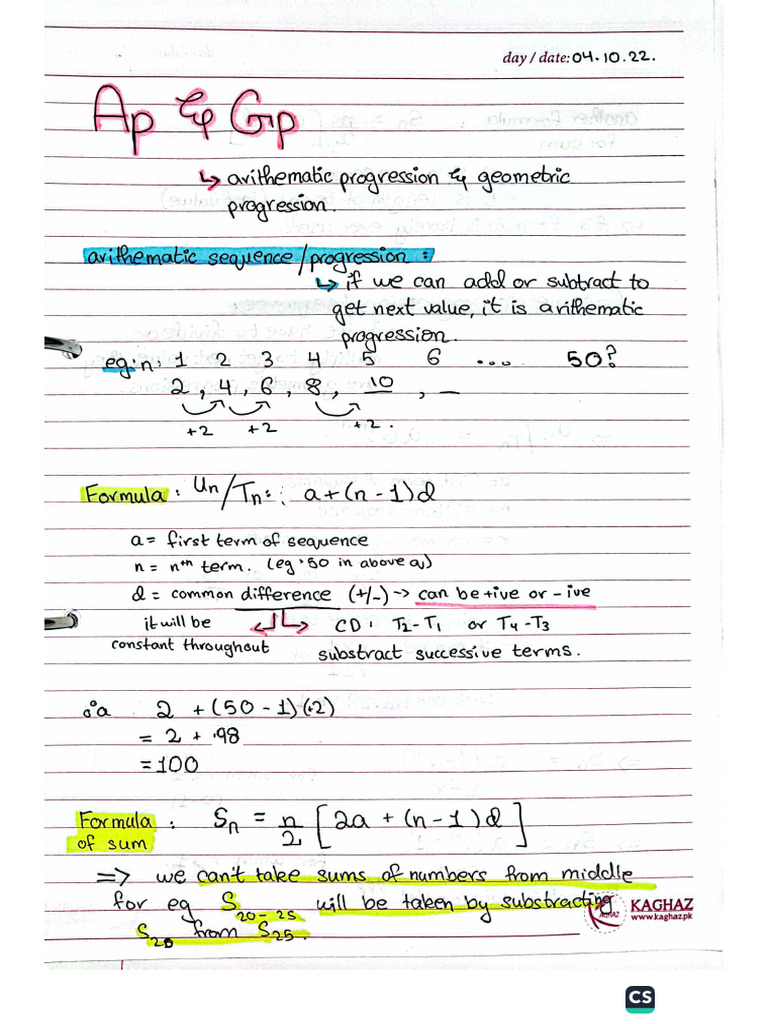 day / date: 04.10.22.
Ap & Gp
↳ arithematic progression & geometric
progression.
arithematic sequence/progression:
↳ if we can add or subtract to
get next value, it is arithematic
progression.
eg: n: 1 2 3 4 5 6 .... 50?
2, 4, 6, 8, 10, _
+2 +2 +2.
Formula: Un/Tn: a+(n-1)d
a = first term of sequence
n = nth term. (eg 50 in above q)
d = common difference (+/-) → can be +ive or -ive
it will be CD: T2-T1 or T4-T3
constant throughout substract successive terms.
2 + (50-1)(+2)
= 2 + 98
= 100
Formula of sum: Sn = n/2 [2a + (n-1)d]
=> we can't take sums of numbers from middle
for eg S20-25 will be taken by substracting
S20 from S25.
KAGHAZ
www.kaghaz.pk
CS